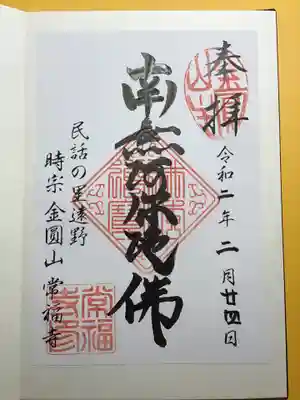 奉拝
令和二年二月廿四日
南無阿弥陀佛
民話の里遠野
時宗 金圓山 常福寺
常福寺印